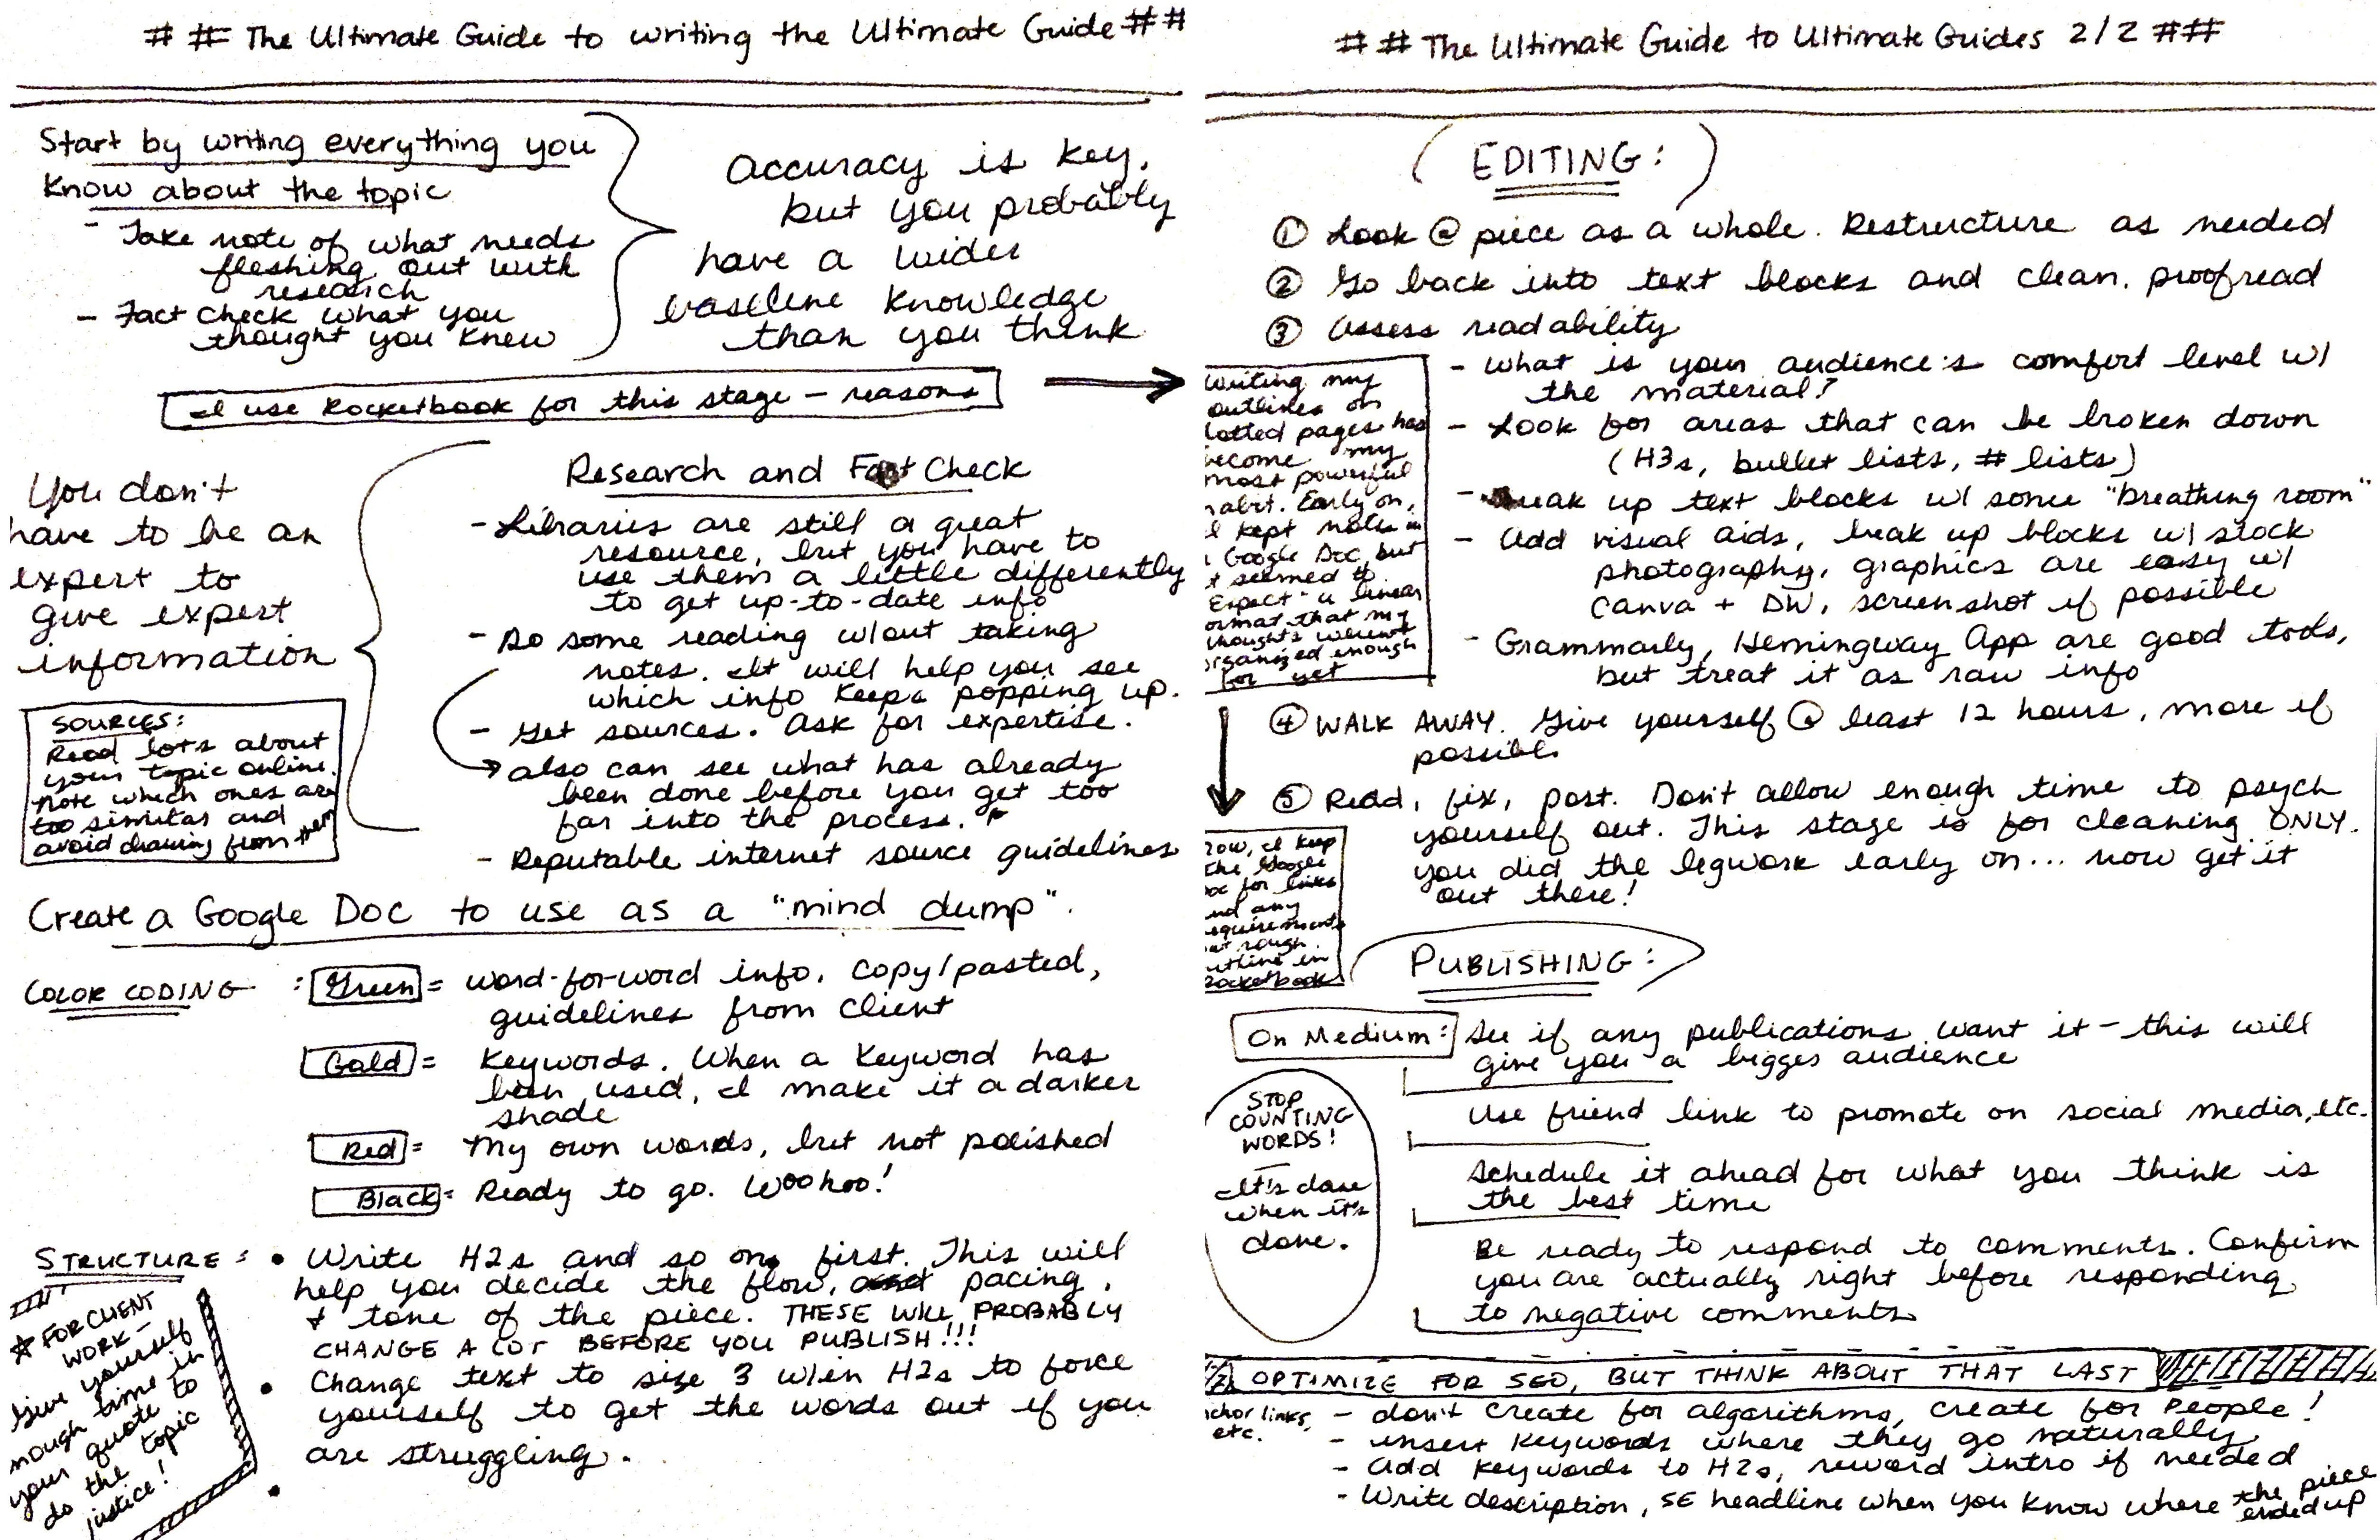 ## The Ultimate Guide to writing the Ultimate Guide ##
Start by writing everything you
know about the topic
- Take note of what needs
fleshing out with
research
- Fact check what you
thought you knew
Accuracy is key,
but you probably
have a wider
baseline knowledge
than you think
I use Rocketbook for this stage - reasons
You don't
have to be an
expert to
give expert
information
Research and Fact Check
- Libraries are still a great
resource, but you have to
use them a little differently
to get up-to-date info
- Do some reading w/out taking
notes. It will help you see
which info keeps popping up.
- Get sources. Ask for expertise.
also can see what has already
been done before you get too
far into the process.
- Reputable internet source guidelines
SOURCES:
Read lots about
your topic online.
Note which ones are
too similar and
avoid drawing from them
Create a Google Doc to use as a "mind dump".
COLOR CODING :
Green = word-for-word info. Copy/pasted,
guidelines from client
Gold = Keywords. When a keyword has
been used, I make it a darker
shade
Red = My own words, but not polished
Black = Ready to go. Woohoo!
STRUCTURE :
• Write H2s and so on, first. This will
help you decide the flow, pacing,
+ tone of the piece. THESE WILL PROBABLY
CHANGE A LOT BEFORE YOU PUBLISH!!!
• Change text to size 3 w/in H2s to force
yourself to get the words out if you
are struggling.
•
* FOR CLIENT
WORK -
Give yourself
nough time in
your quote to
do the topic
justice!
## The Ultimate Guide to Ultimate Guides 2/2 ##
(EDITING:)
① Look @ piece as a whole. Restructure as needed
② Go back into text blocks and clean, proofread
③ Assess readability
- What is your audience's comfort level w/
the material?
- Look for areas that can be broken down
(H3s, bullet lists, # lists)
- Break up text blocks w/ some "breathing room"
- Add visual aids, break up blocks w/ stock
photography, graphics are easy w/
Canva + DW, screenshot if possible
- Grammarly, Hemingway App are good tools,
but treat it as raw info
④ WALK AWAY. Give yourself @ least 12 hours, more if
possible
⑤ Read, fix, post. Don't allow enough time to psych
yourself out. This stage is for cleaning ONLY.
you did the legwork early on... now get it
out there!
Writing my
outlines on
dotted pages has
become my
most powerful
habit. Early on,
I kept notes in
a Google Doc, but
it seemed to
"Expect" a linear
format that my
thoughts weren't
organized enough
for yet
Now, I keep
the Google
Doc for links
and any
requirements
but rough
outline in
Rocketbook
PUBLISHING:
On Medium: See if any publications want it - this will
give you a bigger audience
Use friend link to promote on social media, etc.
Schedule it ahead for what you think is
the best time
Be ready to respond to comments. Confirm
you are actually right before responding
to negative comments
STOP
COUNTING
WORDS!
It's done
when it's
done.
OPTIMIZE FOR SEO, BUT THINK ABOUT THAT LAST
nchor links,
etc.
- don't create for algorithms, create for people!
- insert keywords where they go naturally
- Add keywords to H2s, reword intro if needed
- Write description, SE headline when you know where the piece
ended up